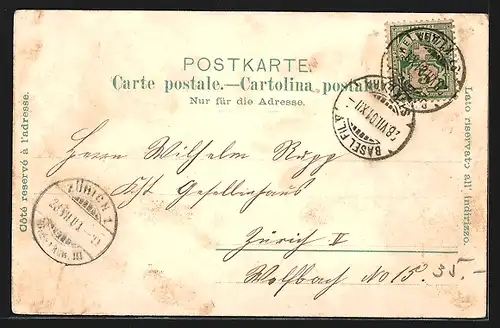 POSTKARTE.
Carte postale.—Cartolina postale
Nur für die Adresse.
Côté reservé à l'adresse.
Lato riservato all' indirizzo.
BASEL FIL.
28.VII.01.XII
ZÜRICH
Herrn Wilhelm Rupp
Gesellenhaus
Zürich V
Wolfbach No 15. 35.-